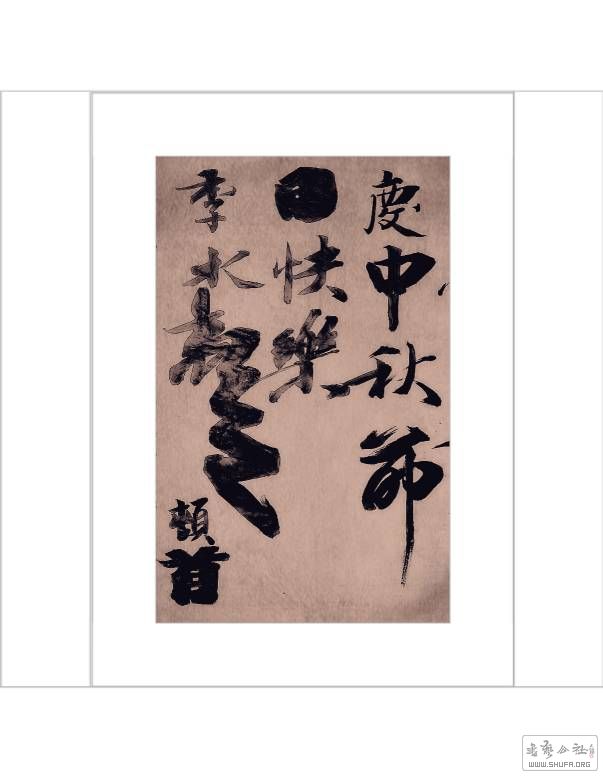 慶中秋節
日快樂
季水
頓首
书艺公社
WWW.SHUFA.ORG